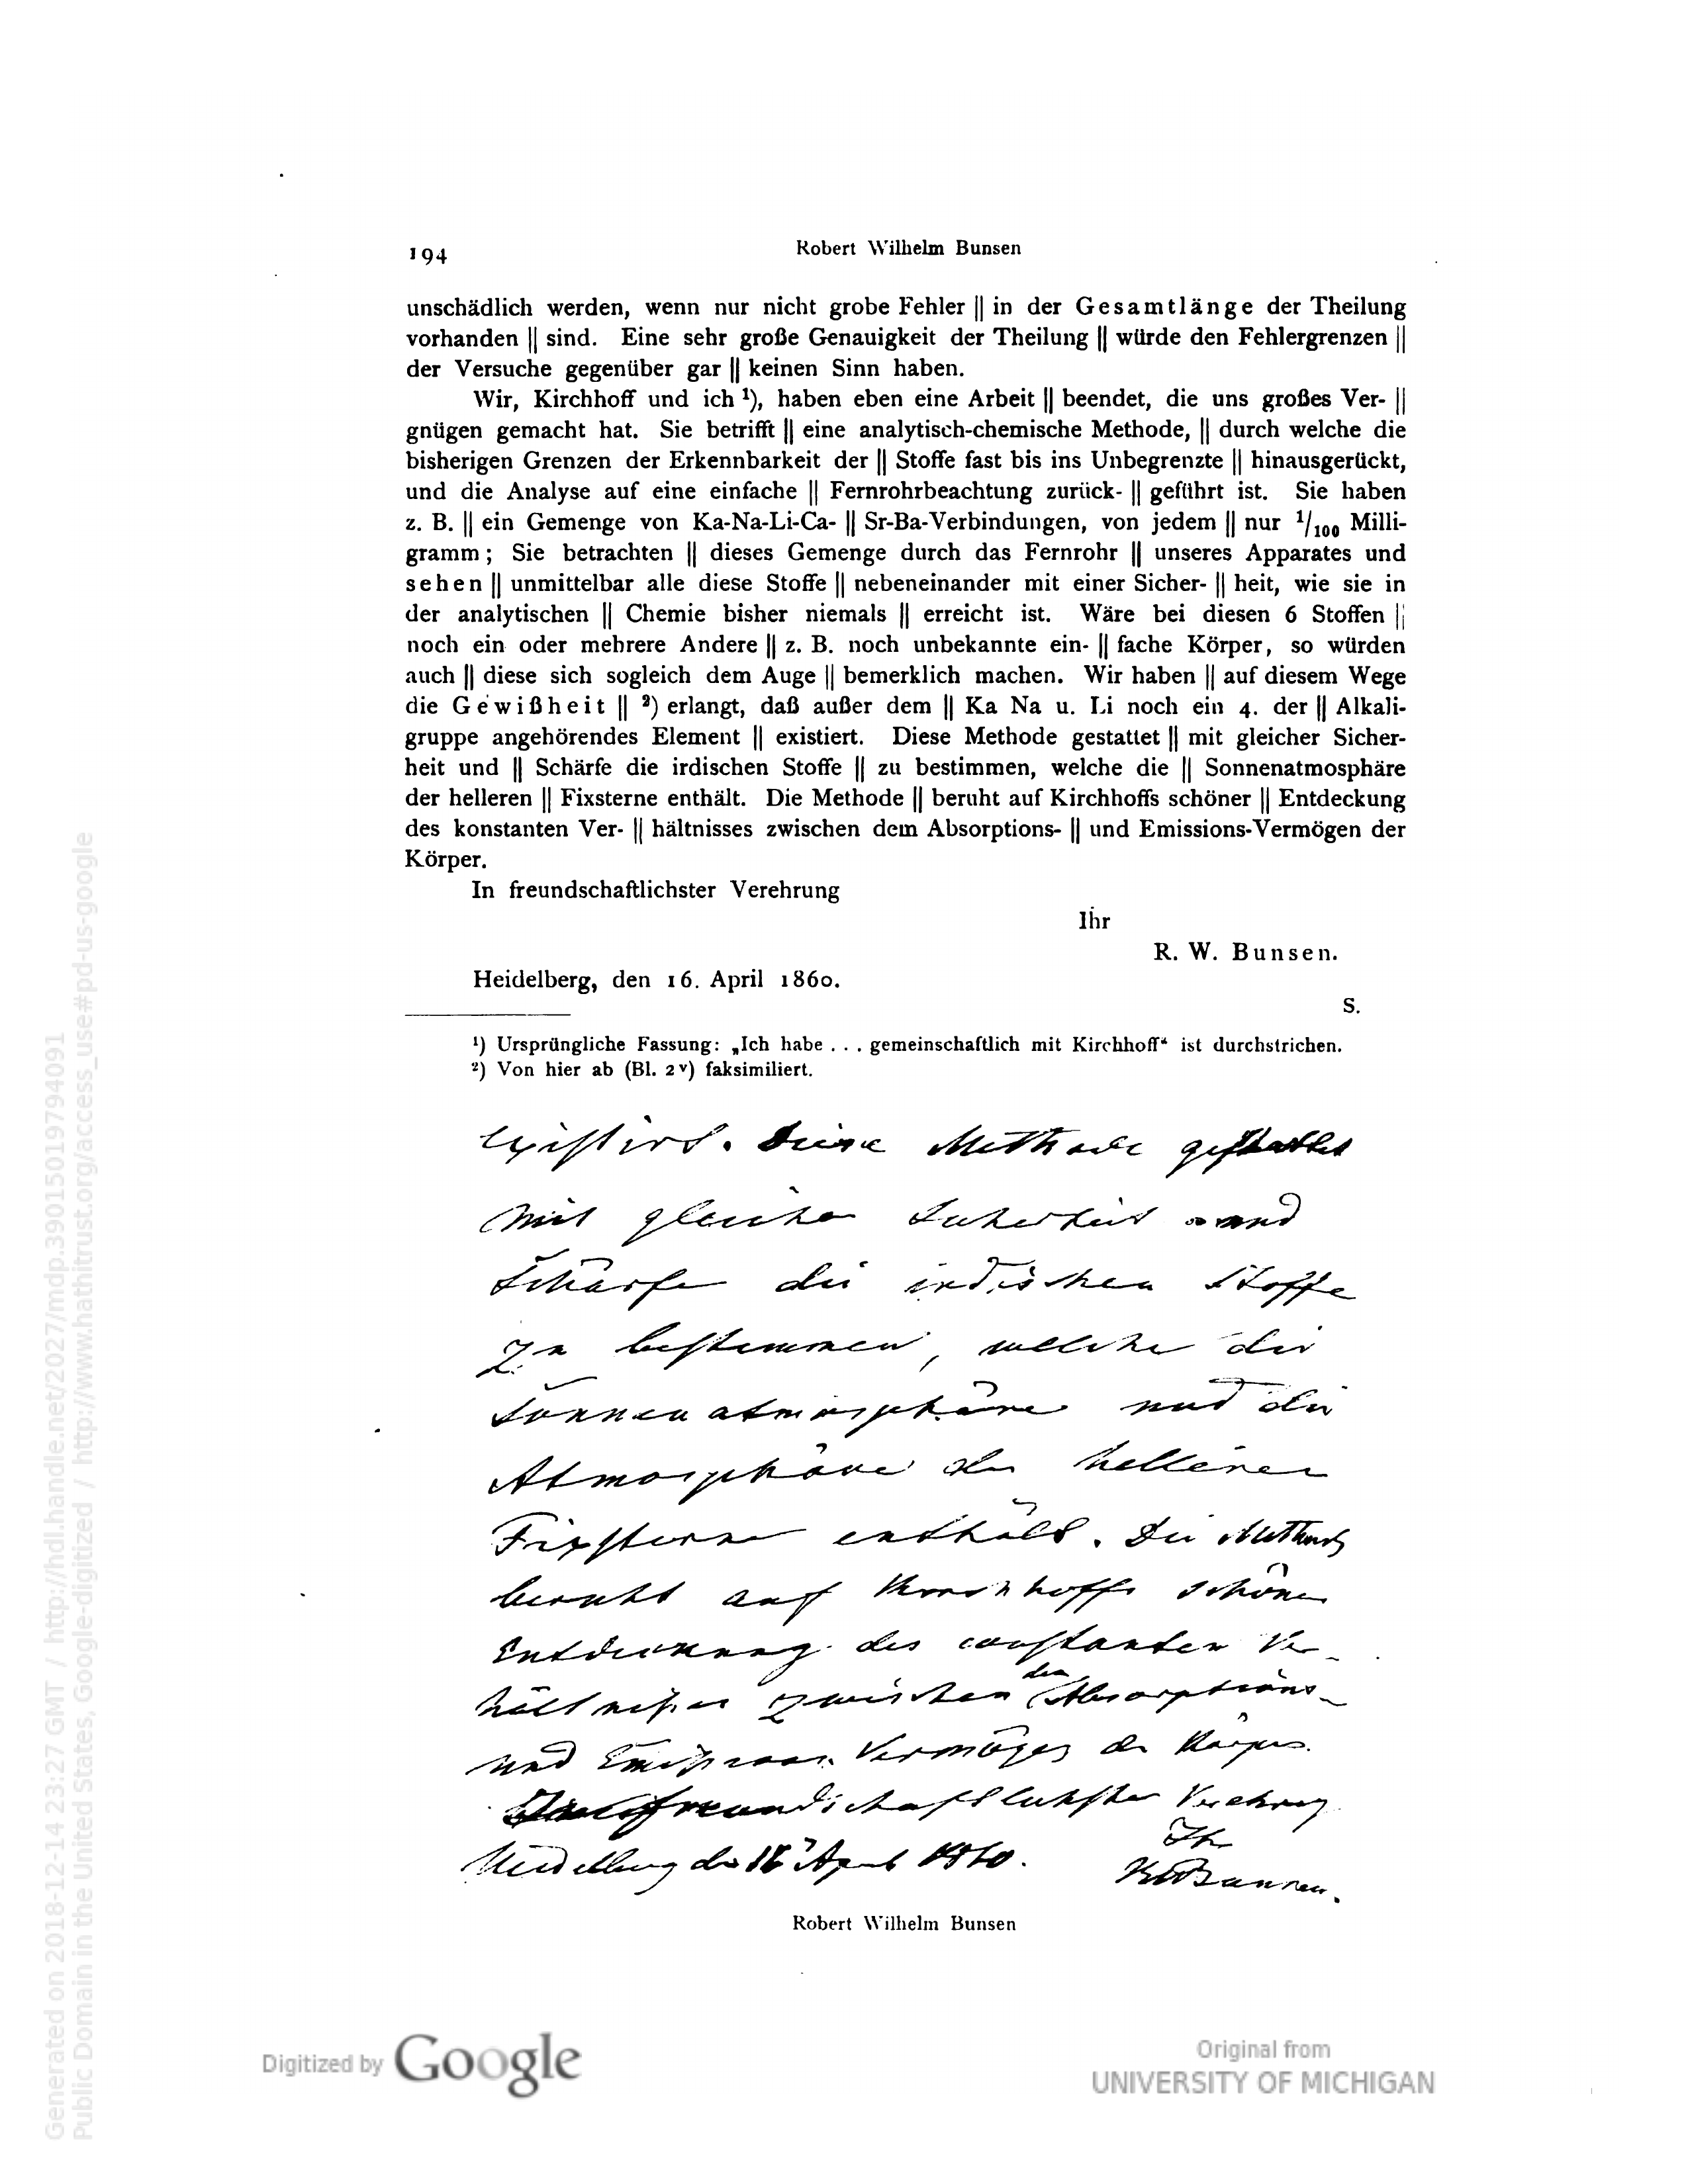 194
Robert Wilhelm Bunsen
unschädlich werden, wenn nur nicht grobe Fehler || in der Gesamtlänge der Theilung
vorhanden || sind. Eine sehr große Genauigkeit der Theilung || würde den Fehlergrenzen ||
der Versuche gegenüber gar || keinen Sinn haben.
Wir, Kirchhoff und ich ¹), haben eben eine Arbeit || beendet, die uns großes Ver- ||
gnügen gemacht hat. Sie betrifft || eine analytisch-chemische Methode, || durch welche die
bisherigen Grenzen der Erkennbarkeit der || Stoffe fast bis ins Unbegrenzte || hinausgerückt,
und die Analyse auf eine einfache || Fernrohrbeachtung zurück- || geführt ist. Sie haben
z. B. || ein Gemenge von Ka-Na-Li-Ca- || Sr-Ba-Verbindungen, von jedem || nur ¹/₁₀₀ Milli-
gramm; Sie betrachten || dieses Gemenge durch das Fernrohr || unseres Apparates und
sehen || unmittelbar alle diese Stoffe || nebeneinander mit einer Sicher- || heit, wie sie in
der analytischen || Chemie bisher niemals || erreicht ist. Wäre bei diesen 6 Stoffen ||
noch ein oder mehrere Andere || z. B. noch unbekannte ein- || fache Körper, so würden
auch || diese sich sogleich dem Auge || bemerklich machen. Wir haben || auf diesem Wege
die Gewißheit || ²) erlangt, daß außer dem || Ka Na u. Li noch ein 4. der || Alkali-
gruppe angehörendes Element || existiert. Diese Methode gestattet || mit gleicher Sicher-
heit und || Schärfe die irdischen Stoffe || zu bestimmen, welche die || Sonnenatmosphäre
der helleren || Fixsterne enthält. Die Methode || beruht auf Kirchhoffs schöner || Entdeckung
des konstanten Ver- || hältnisses zwischen dem Absorptions- || und Emissions-Vermögen der
Körper.
In freundschaftlichster Verehrung
Ihr
R. W. Bunsen.
Heidelberg, den 16. April 1860.
S.
¹) Ursprüngliche Fassung: „Ich habe . . . gemeinschaftlich mit Kirchhoff“ ist durchstrichen.
²) Von hier ab (Bl. 2ᵛ) faksimiliert.
existirt. Diese Methode gestattet
mit gleicher Sicherheit und
Schärfe die irdischen Stoffe
zu bestimmen, welche die
Sonnenatmosphäre und die
Atmosphäre der helleren
Fixsterne enthält. Die Methode
beruht auf Kirchhoffs schöner
Entdeckung des constanten Ver-
hältnißes zwischen dem Absorptions-
und Emissions Vermögen der Körper.
freundschaftlichster Verehrung
Ihr
Heidelberg den 16 April 1860.
RWBunsen.
Robert Wilhelm Bunsen
Digitized by Google
Original from
UNIVERSITY OF MICHIGAN
Generated on 2018-12-14 23:27 GMT / http://hdl.handle.net/2027/mdp.39015019794091
Public Domain in the United States, Google-digitized / http://www.hathitrust.org/access_use#pd-us-google